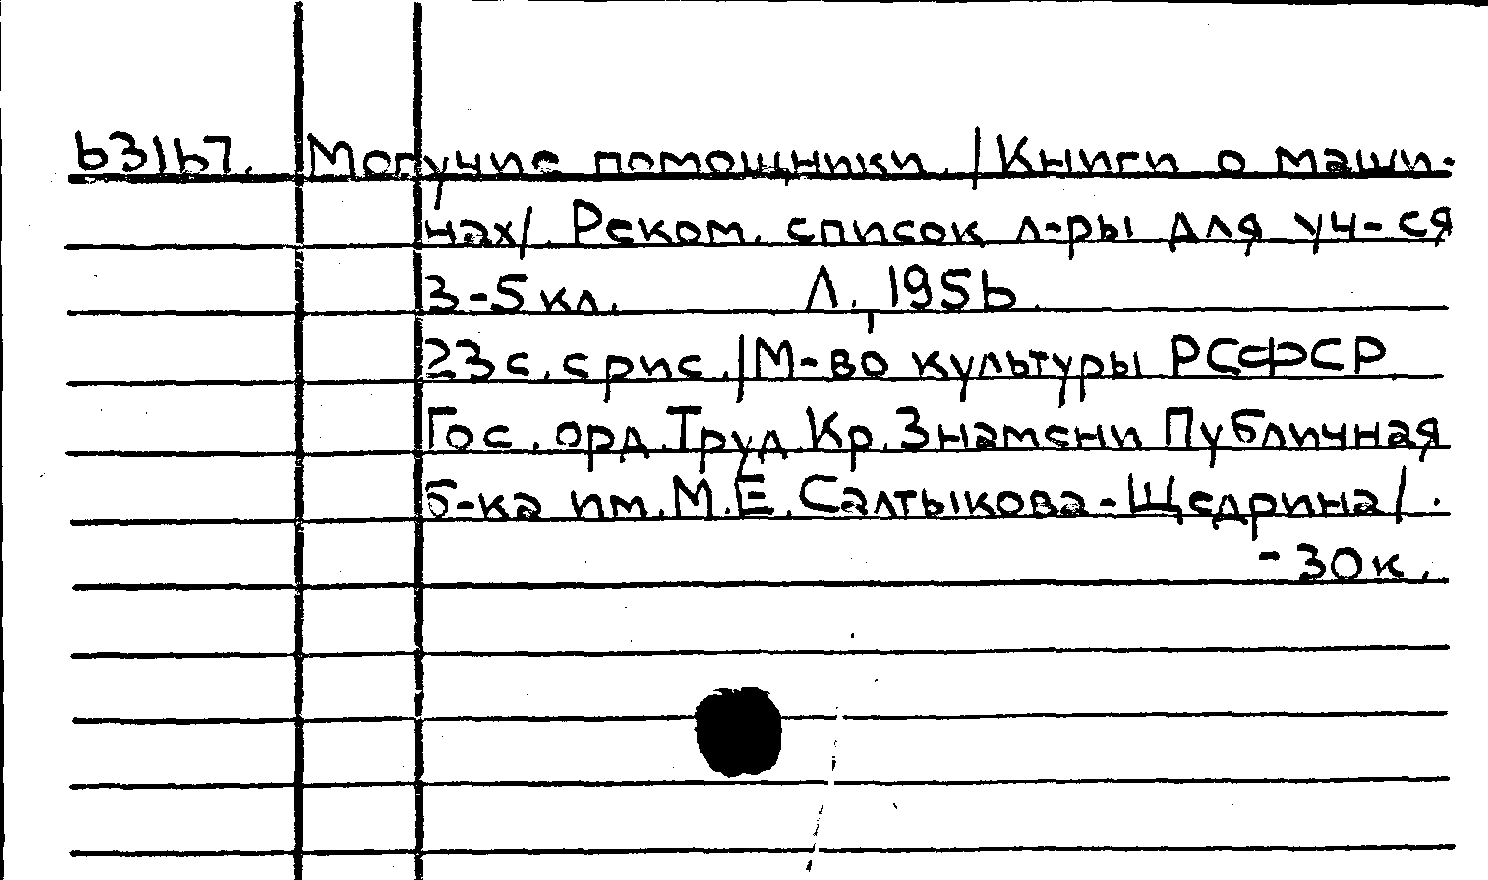 63167. Могучие помощники. /Книги о маши-
нах/. Реком. список л-ры для уч-ся
3-5 кл. Л., 1956.
23 с. с рис. /М-во культуры РСФСР.
Гос. орд. Труд. Кр. Знамени Публичная
б-ка им. М.Е. Салтыкова-Щедрина/.
- 30 к.